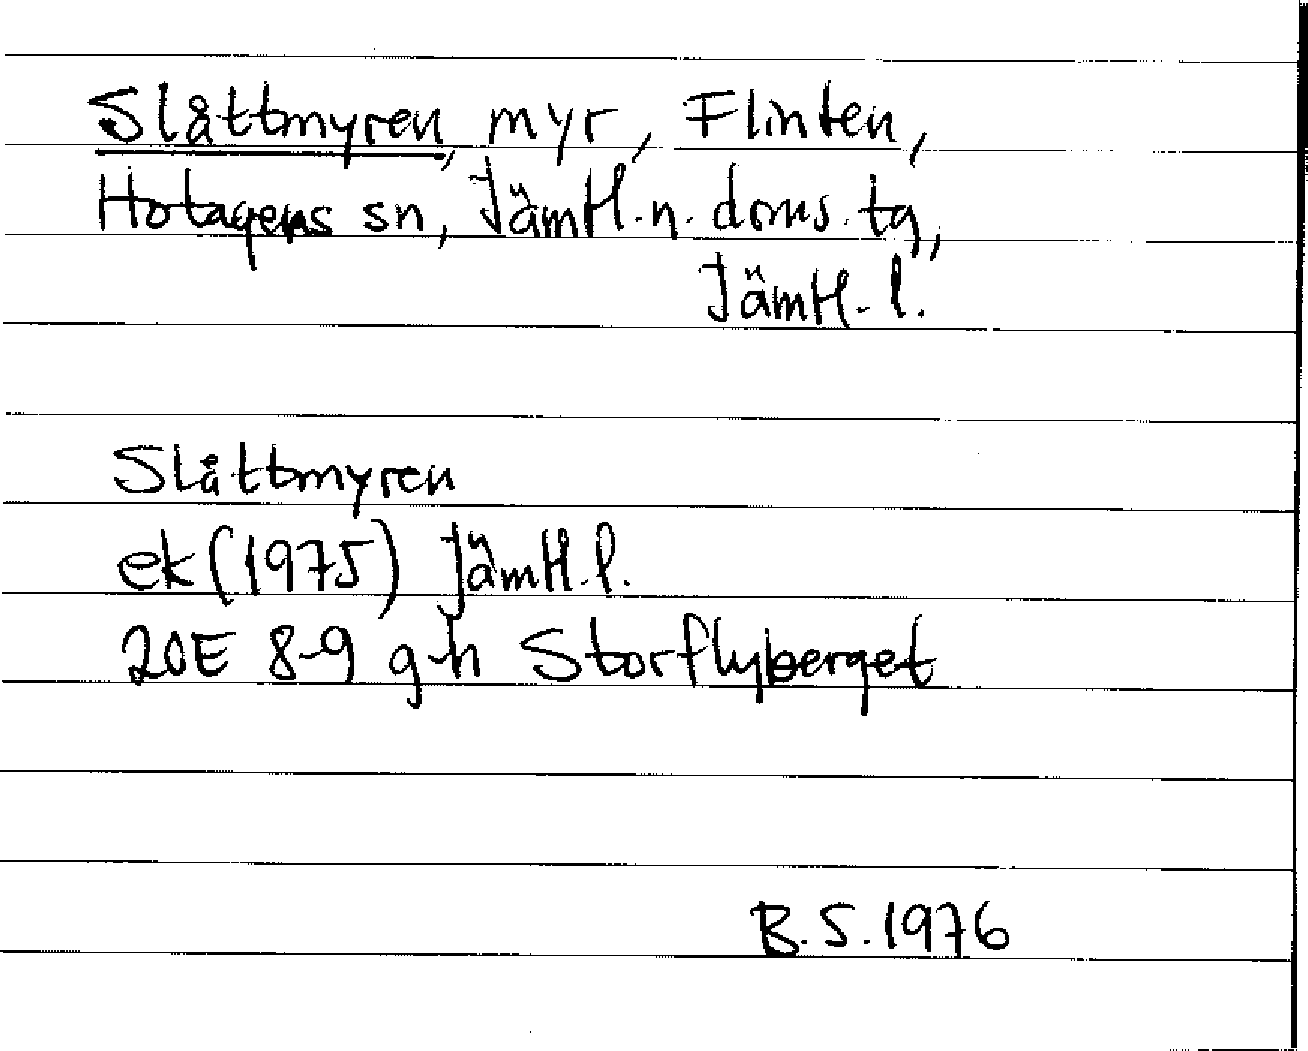 Slåttmyren, myr, Flinten,
Hotagens sn, Jämtl. n. doms. tg,
Jämtl. l.
Slåttmyren
ek (1975) Jämtl. l.
20E 8-9 g-h Storflyberget
B.S. 1976